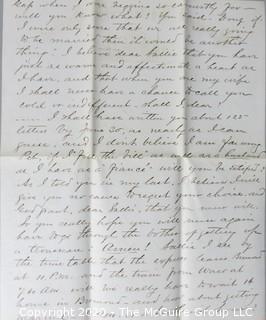 lap when I are begging so earnestly for
will you know what? You said "Long if
I were only sure that we were really going
to be married then it would be another
thing". I believe dear Sallie that you have
just as warm and affectionate a heart as
I have, and that when you are my wife
I shall never have a chance to call you
cold or indifferent. Shall I dear?
I shall have written you about 125
letters by June 30, as nearly as I can
guess, and I don't believe I am far wrong
Pet, if I fill the "bill" as well as a husband
as I have as a "fiancé" will you be satisfied?
As I told you in my last, I believe I will
give you no cause to regret your choice, and
God grant, dear Sallie, that you never will.
So you really hope you will never again
have to go through the bother of getting up
a trousseau! Amen! Sallie I see by
the time table that the express leaves
at 11 P.M. and the train from
7 40 AM. will we really have to wait 16
hours in and how about getting
Copyright 2020 - The McGuire Group LLC